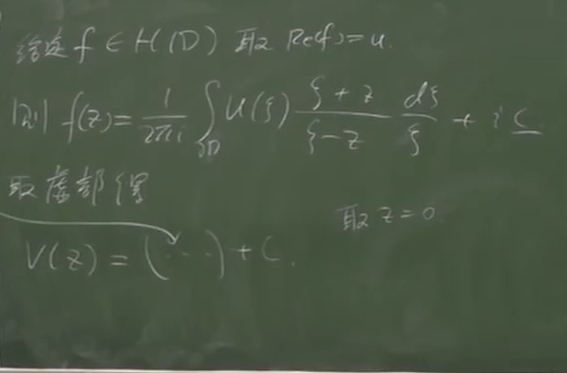 给定 f ∈ H(D) 取 Re(f)=u.
则 f(z)= \frac{1}{2πi} ∫_{∂D} u(ξ) \frac{ξ+z}{ξ-z} \frac{dξ}{ξ} + i C
取虚部得
取 z=0
V(z) = (···) + C.